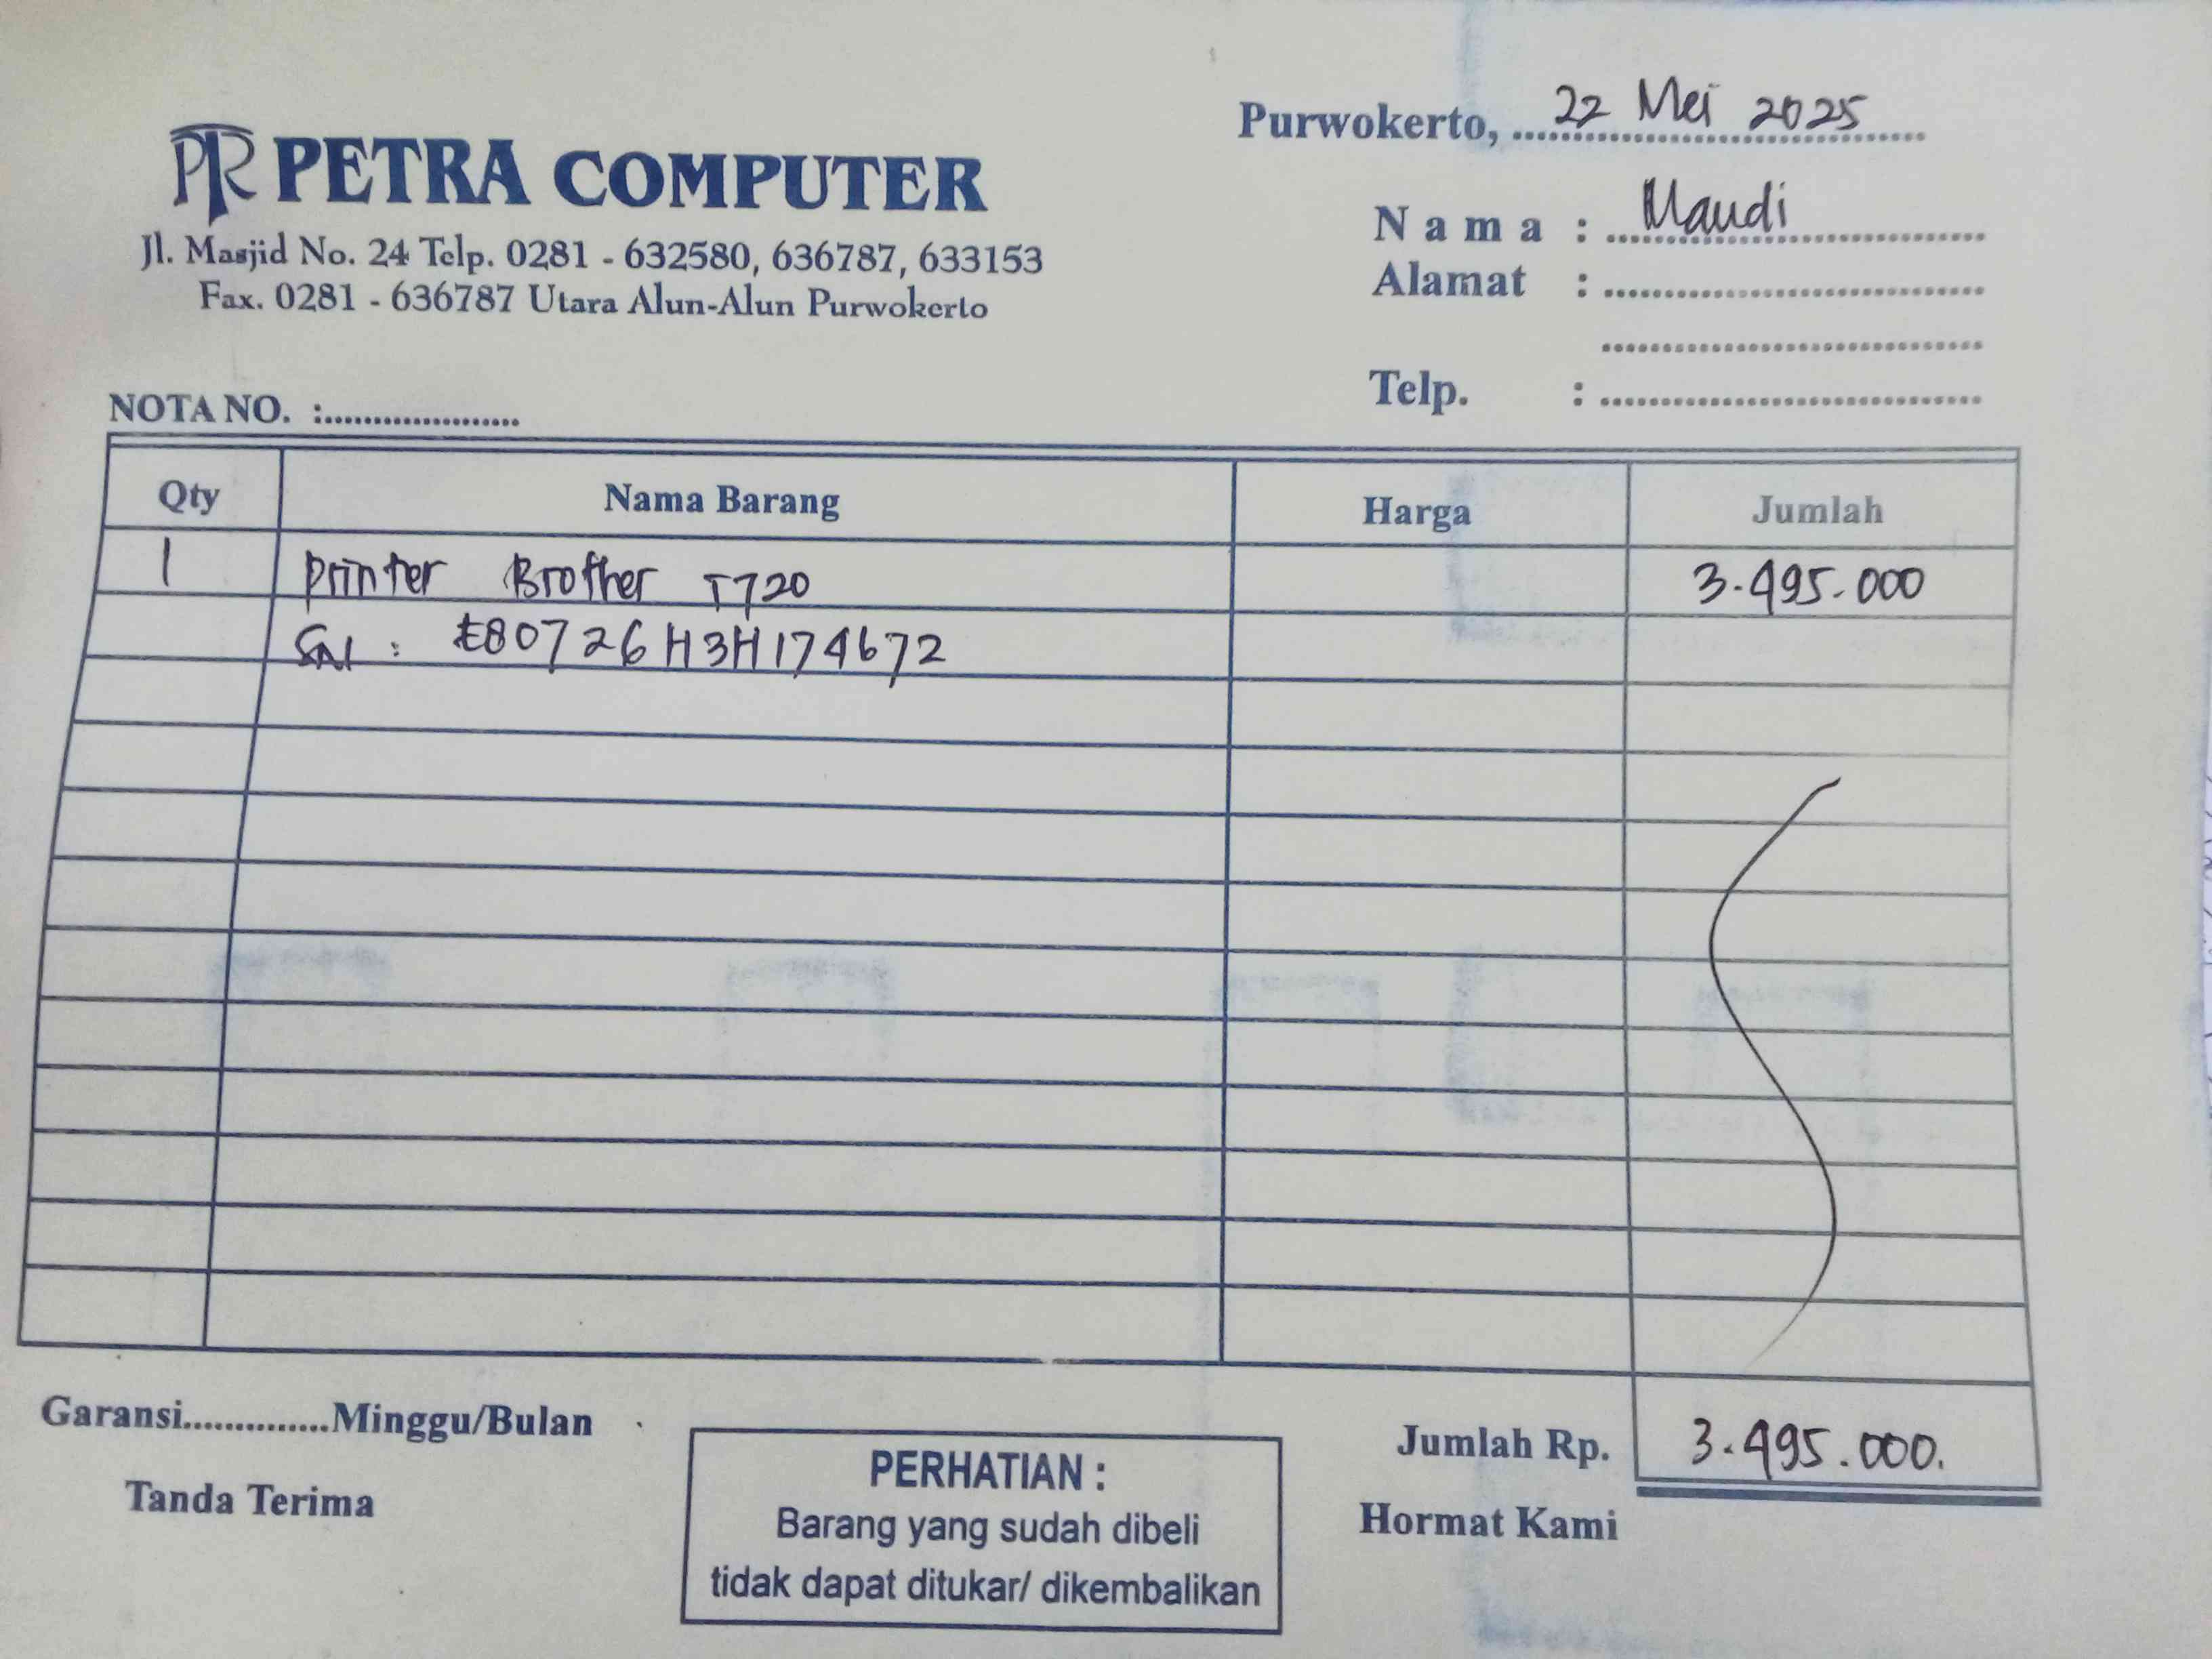 PETRA COMPUTER
Jl. Masjid No. 24 Telp. 0281 - 632580, 636787, 633153
Fax. 0281 - 636787 Utara Alun-Alun Purwokerto
Purwokerto, 22 Mei 2025
Nama : Maudi
Alamat :
Telp. :
NOTA NO. :
Qty Nama Barang Harga Jumlah
1 Printer Brother T720 3.495.000
SN : E80726H3H174672
Garansi..............Minggu/Bulan
Jumlah Rp. 3.495.000.
Tanda Terima
PERHATIAN :
Barang yang sudah dibeli
tidak dapat ditukar/ dikembalikan
Hormat Kami